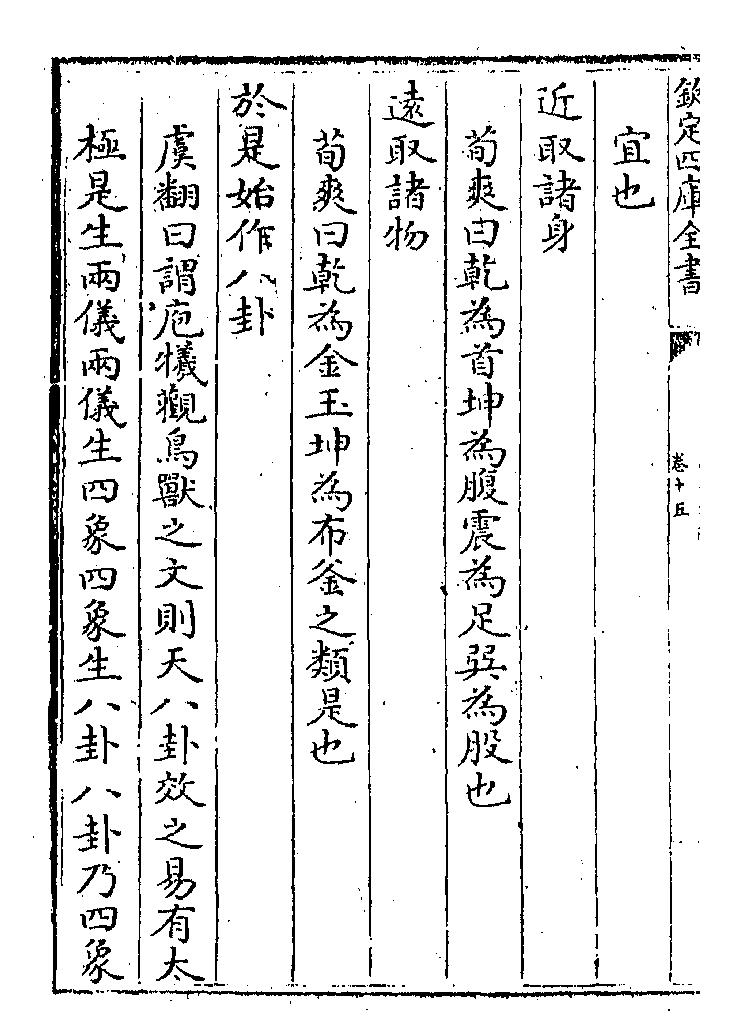 欽定四庫全書 卷十五
宜也
近取諸身
荀爽曰乾為首坤為腹震為足巽為股也
遠取諸物
荀爽曰乾為金玉坤為布釜之類是也
於是始作八卦
虞翻曰謂庖犧觀鳥獸之文則天八卦效之易有太
極是生兩儀兩儀生四象四象生八卦八卦乃四象